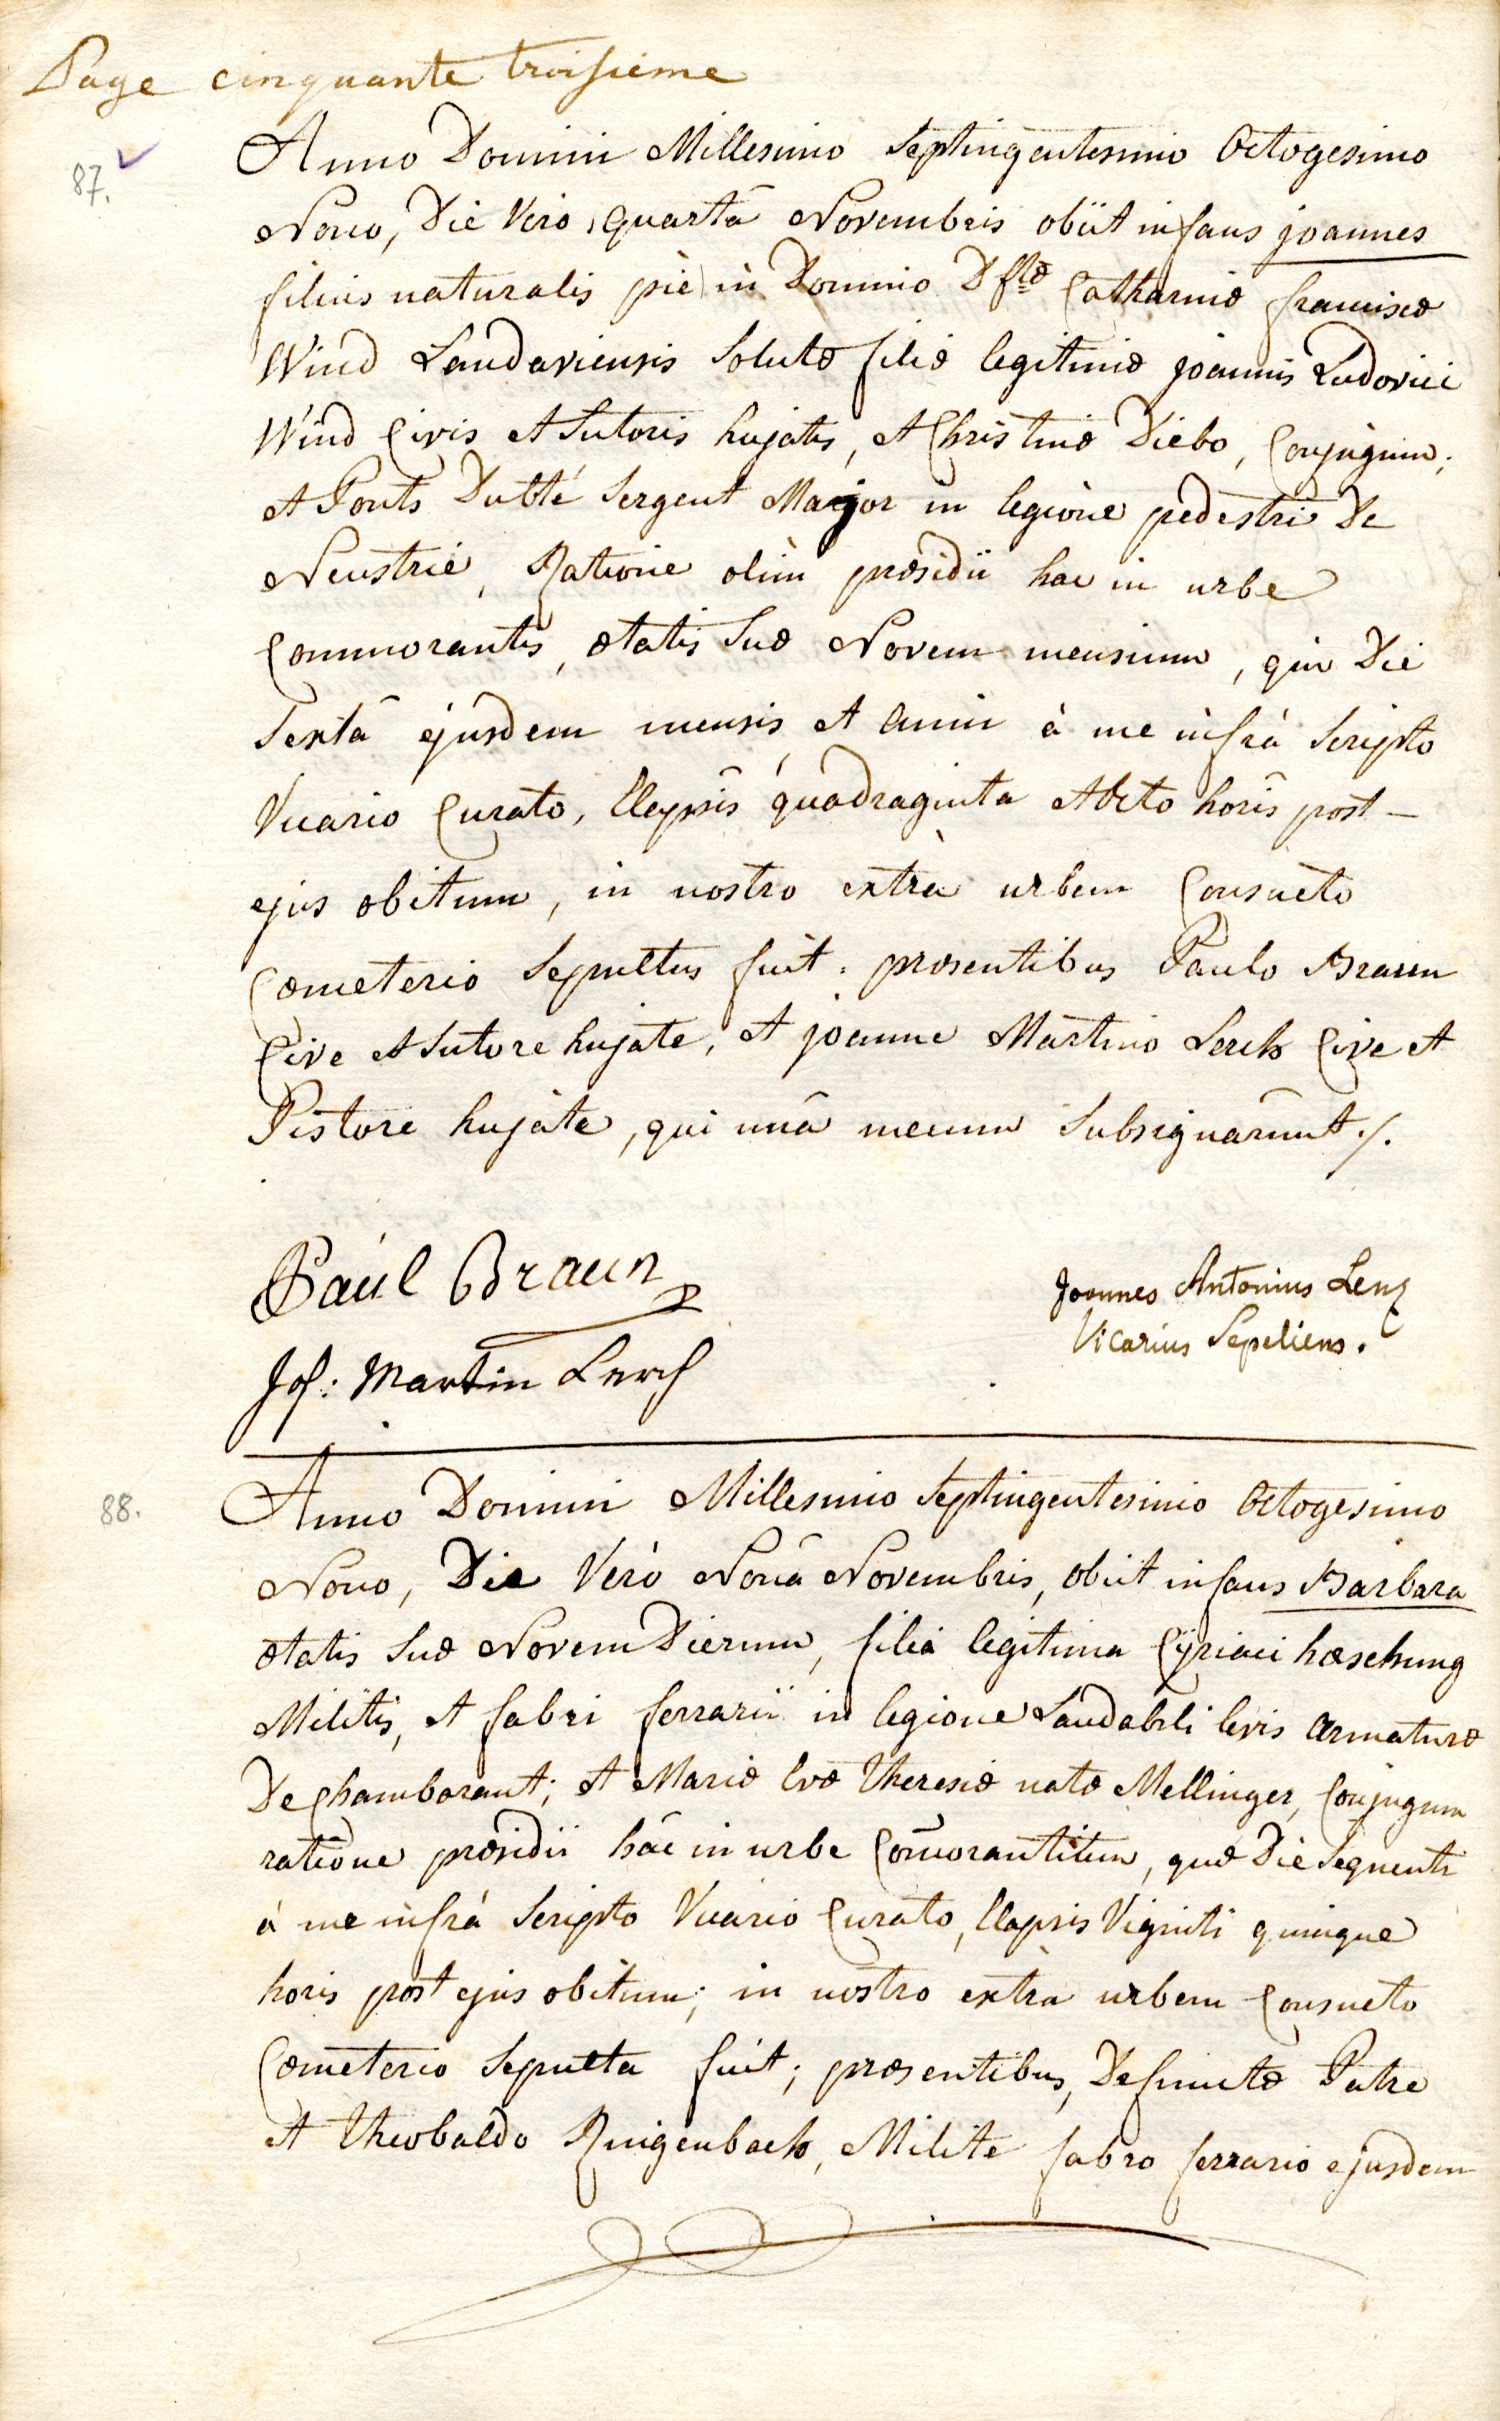 Page cinquante troisieme
87.
Anno Domini Millesimo Septingentesimo Octogesimo
Nono, Die Vero, quartâ Novembris obiit infans joannes
filius naturalis piè in Domino Dftæ Catharinæ franciscæ
Wind Landaviensis Solutæ filiæ legitimæ joannis Ludovici
Wind Civis et Sutoris hujatis, et Christinæ Diebo, Conjugum;
et Ponts Dutté Sergent Major in legione pedestri De
Neustrie, Ratione olim præsidii hac in urbe
Commorantis, ætatis Suæ Novem mensium, qui Die
Sextâ ejusdem mensis et anni à me infrà Scripto
Vicario Curato, Elapsis quadraginta et Octo horis post –
ejus obitum, in nostro extra urbem Consueto
Cœmeterio Sepultus fuit: præsentibus Paulo Braun
Cive et Sutore hujate, et joanne Martino Lerch Cive et
Pistore hujate, qui unâ mecum Subsignarunt ./.
Paul Braun
Joannes Antonius Lenz
Vicarius Sepeliens.
Joh: Martin Lerch
88.
Anno Domini Millesimo Septingentesimo Octogesimo
Nono, Die Verò Nonâ Novembris, obiit infans Barbara
ætatis Suæ Novem Dierum, filia legitima Cÿriaci hœschung
Militis, et fabri ferrarii in legione Laudabili levis Armaturæ
De Chamborant; et Mariæ Evæ Theresiæ natæ Mellinger, Conjugum
ratione præsidii hâc in urbe Com̄orantium, quæ Die Sequenti
à me infrà Scripto Vicario Curato, Elapsis Viginti quinque
horis post ejus obitum; in nostro extra urbem Consueto
Cœmeterio Sepulta fuit; præsentibus, Defunctæ Patre
et Theobaldo Ringenbach, Milite fabro ferrario ejusdem